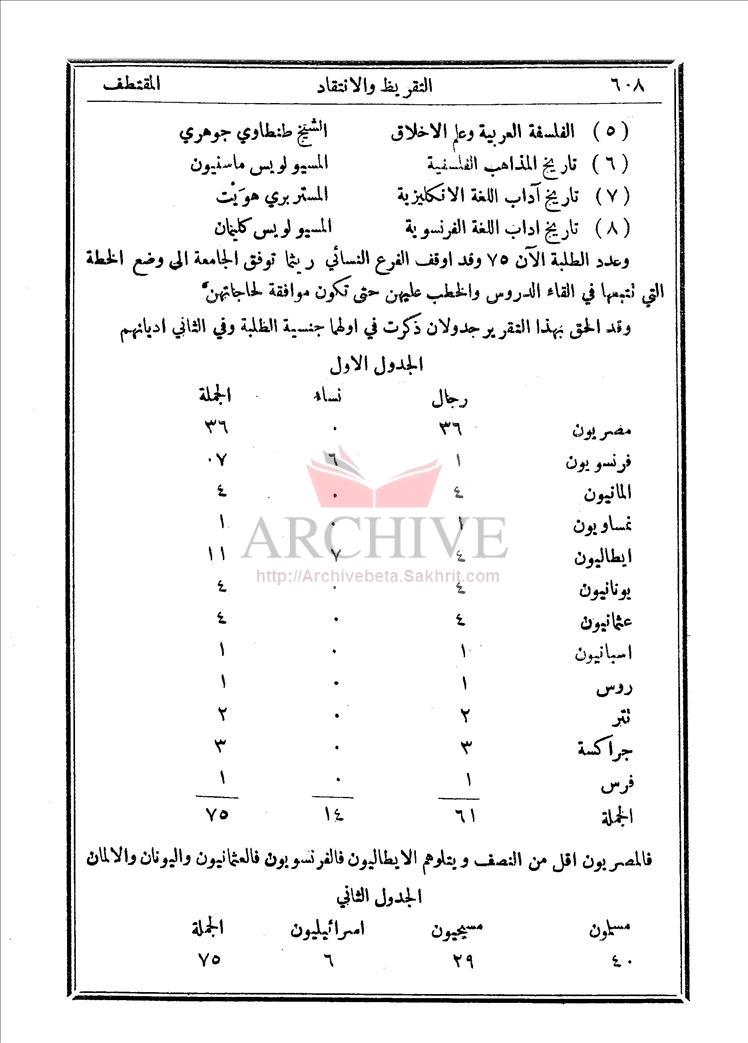 ٦٠٨ التقريظ والانتقاد المقتطف
(٥) الفلسفة العربية وعلم الاخلاق الشيخ طنطاوي جوهري
(٦) تاريخ المذاهب الفلسفية المسيو لويس ماسنيون
(٧) تاريخ آداب اللغة الانكليزية المستر بري هوَيْت
(٨) تاريخ اداب اللغة الفرنسوية المسيو لويس كليمان
وعدد الطلبة الآن ٧٥ وقد اوقف الفرع النسائي ريثما توفق الجامعة الى وضع الخطة
التي نتبعها في القاء الدروس والخطب عليهن حتى تكون موافقة لحاجاتهن
وقد الحق بهذا التقرير جدولان ذكرت في اولهما جنسية الطلبة وفي الثاني اديانهم
الجدول الاول
رجال نساء الجملة
مصريون ٣٦ ٠ ٣٦
فرنسويون ١ ٦ ٠٧
المانيون ٤ ٠ ٤
نمساويون ١ ٠ ١
ايطاليون ٤ ٧ ١١
يونانيون ٤ ٠ ٤
عثمانيون ٤ ٠ ٤
اسبانيون ١ ٠ ١
روس ١ ٠ ١
تتر ٢ ٠ ٢
جراكسة ٣ ٠ ٣
فرس ١ ٠ ١
الجملة ٦١ ١٤ ٧٥
فالمصريون اقل من النصف ويتلوهم الايطاليون فالفرنسويون فالعثمانيون واليونان والالمان
الجدول الثاني
مسلمون مسيحيون اسرائيليون الجملة
٤٠ ٢٩ ٦ ٧٥
ARCHIVE
http://Archivebeta.Sakhrit.com